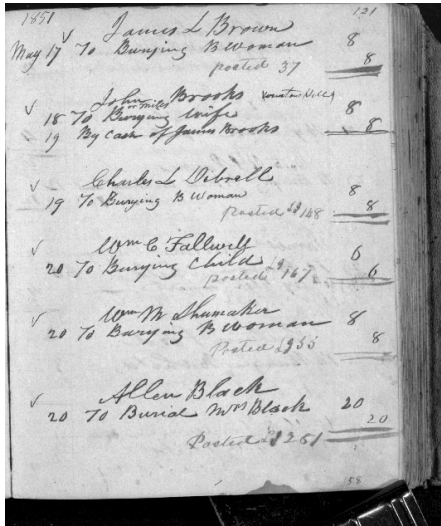 1851 121
James L Brown
May 17 To Burying B Woman 8
posted 37 8
John Brooks
or Miles
18 To Burying Wife 8
19 By Cash of James Brooks 8
Charles L Dibrell
19 To Burying B Woman 8
posted 148 8
Wm C Fallwell
20 To Burying Child 6
posted 167 6
Wm M Shumaker
20 To Burying B Woman 8
Posted 8
Allen Black
20 To Burial Mrs Black 20
Posted 261 20
58